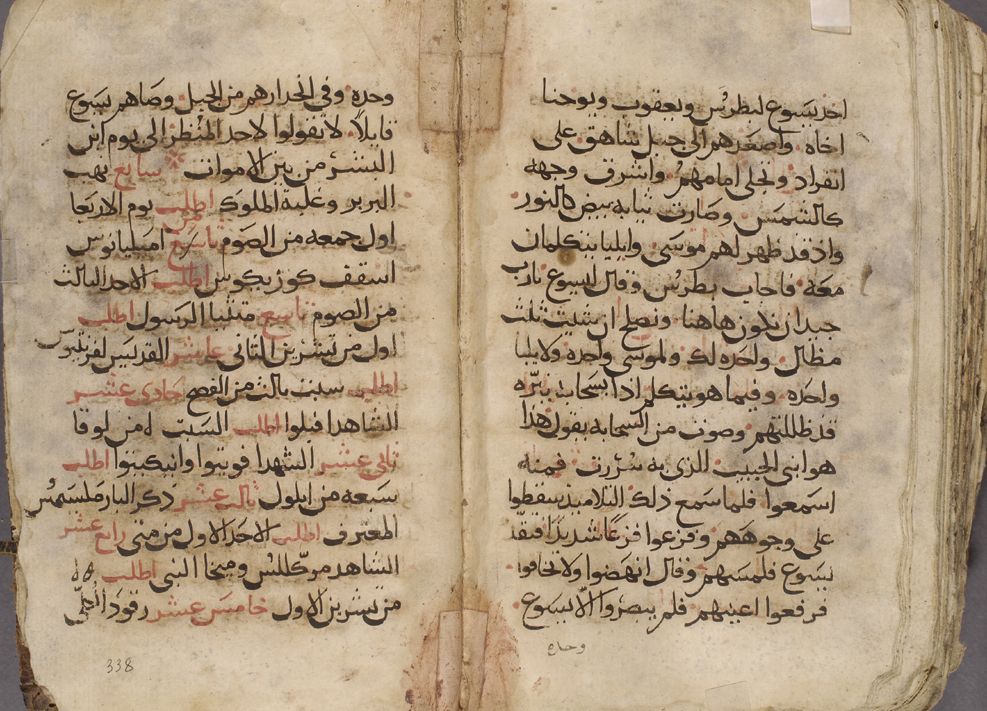 اخذ يسوع لبطرس ويعقوب ويوحنا
اخاه واصعدهم الى جبل شاهق على
انفراد وتجلى امامهم واشرق وجهه
كالشمس وصارت ثيابه بيض كالنور
واذ قد ظهر لهم موسى وايليا يتكلمان
معه فاجاب بطرس وقال ليسوع يارب
جيد ان نكون هاهنا ونصلح ان شيت ثلث
مظال واحده لك ولموسى واحده ولايليا
واحده وفيما هو يتكلم اذا بسحابه نيره
قد ظللتهم وصوت من السحابه يقول هذا
هو ابنى الحبيب الذى به سررت فمنه
اسمعوا فلما سمع ذلك التلاميذ سقطوا
على وجوههم وفزعوا فزعا شديدا فتقدم
يسوع فلمسهم وقال انهضوا ولا تخافوا
فرفعوا اعينهم فلم يبصروا الا يسوع
وحده
وحده وفى انحدارهم من الجبل وصاهم يسوع
قايلا لا تقولوا لاحد المنظر الى يوم ابن
البشر من بين الاموات سابع نهب
البربر وغلبة الملوك اطلب يوم الاربعا
اول جمعه من الصوم تاسع امسليانوس
اسقف كوزيكوس اطلب الاحد الثالث
من الصوم تاسع متثيا الرسول اطلب
اول من تشرين الثانى عاشر القديس لفرنتيوس
اطلب سبت ثالث من الفصح حادى عشر
الشاهد افبلوا اطلب السبت من لوقا
ثانى عشر الشهدا فوتيوا وانيكيتوا اطلب
سبعه من ايلول ثالث عشر ذكر البار مكسيموس
المعترف اطلب الاحد الاول من متى رابع عشر
الشاهد مركللس وميخا النبى اطلب
من تشرين الاول خامس عشر رقود
338